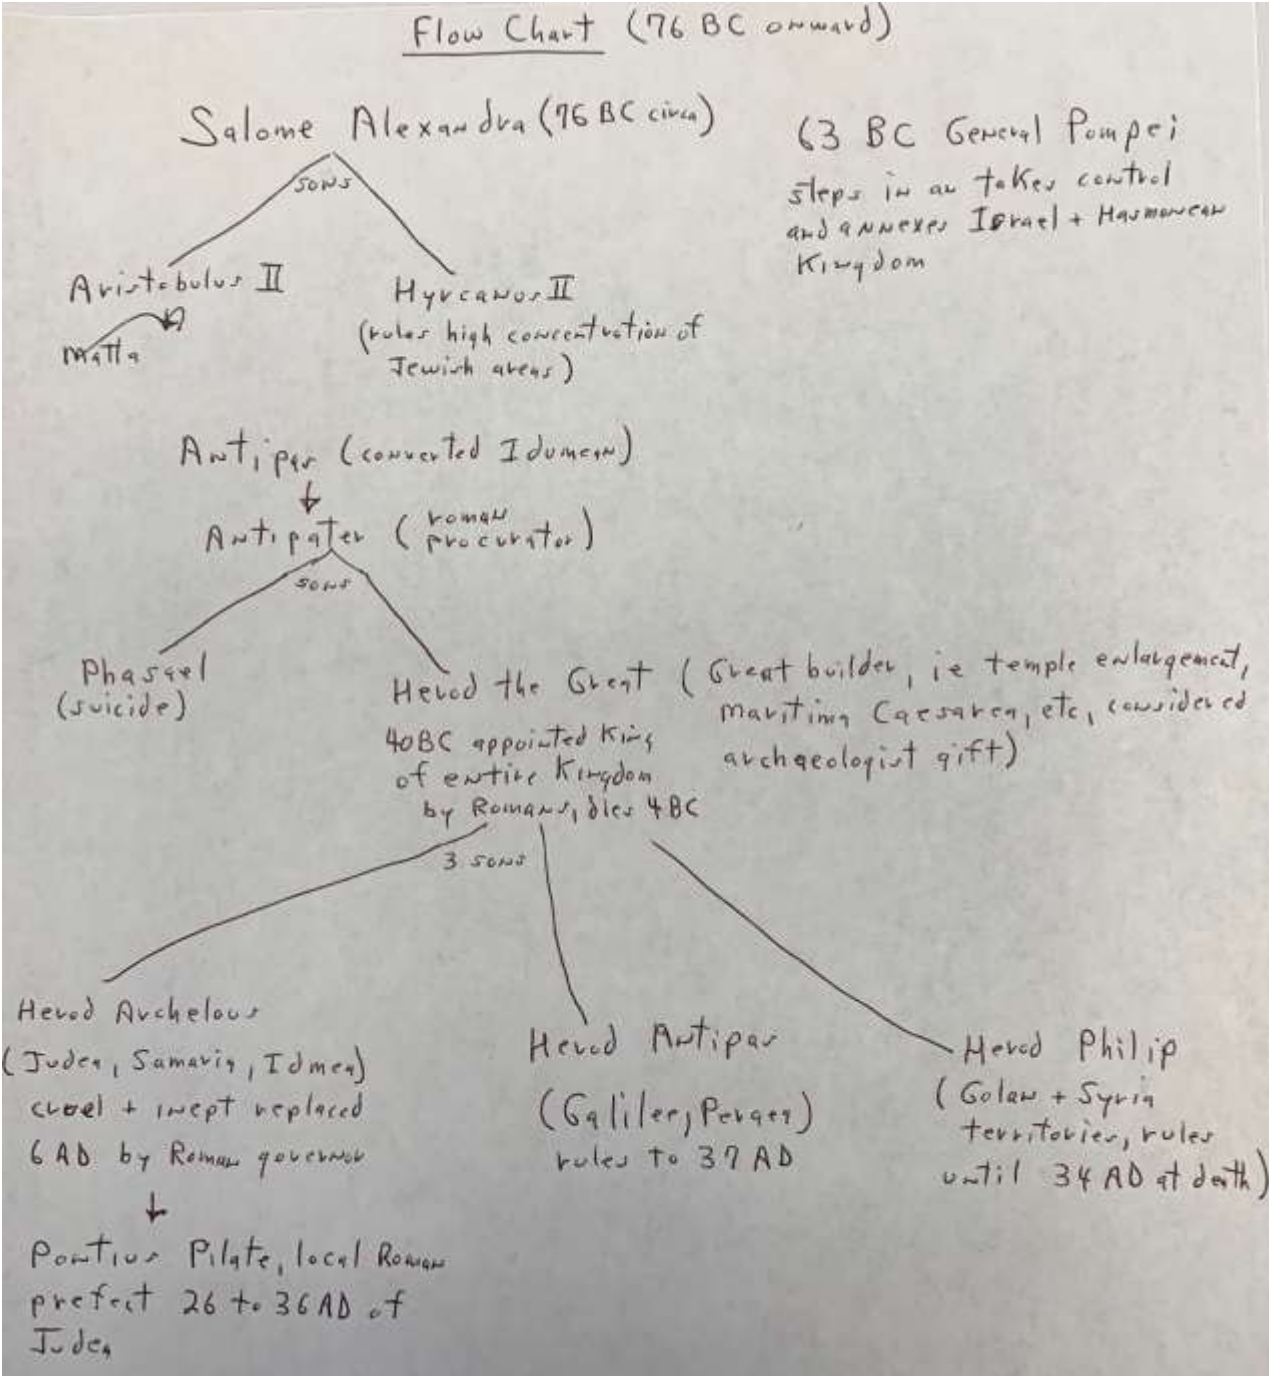 Flow Chart (76 BC onward)
Salome Alexandra (76 BC circa)
sons
Aristobulus II
Matta
Hyrcanos II
(rules high concentration of
Jewish areas)
63 BC General Pompei
steps in an takes control
and annexes Israel + Hasmonean
Kingdom
Antipas (converted Idumean)
Antipater (roman
procurator)
sons
Phasael
(suicide)
Herod the Great (Great builder, ie temple enlargement,
maritima Caesarea, etc, considered
archaeologist gift)
40BC appointed King
of entire Kingdom
by Romans, dies 4BC
3 sons
Herod Archelous
(Judea, Samaria, Idmea)
cruel + inept replaced
6 AD by Roman governor
Pontius Pilate, local Roman
prefect 26 to 36 AD of
Judea
Herod Antipas
(Galilee, Peraea)
rules to 37 AD
Herod Philip
(Golan + Syria
territories, rules
until 34 AD at death)